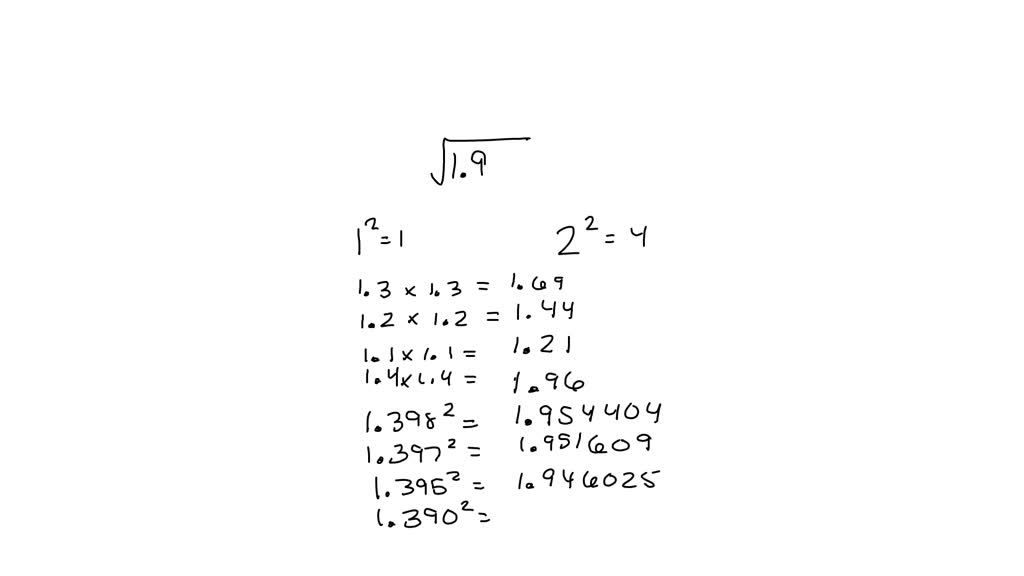 √1.9
1² = 1 2² = 4
1.3 × 1.3 = 1.69
1.2 × 1.2 = 1.44
1.1 × 1.1 = 1.21
1.4 × 1.4 = 1.96
1.398² = 1.954404
1.397² = 1.951609
1.395² = 1.946025
1.390² =